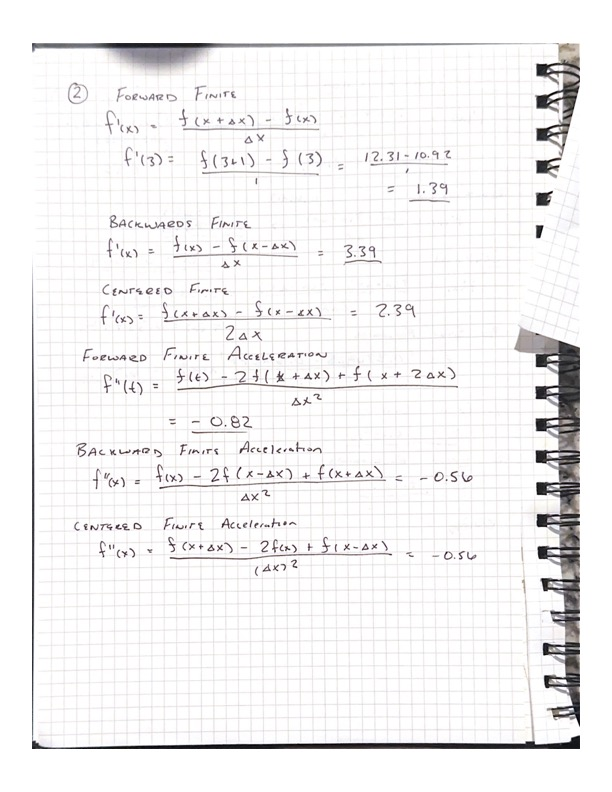 2 FORWARD FINITE
f'(x) = f(x + Δx) - f(x) / Δx
f'(3) = f(3+1) - f(3) / 1 = 12.31 - 10.92 / 1
= 1.39
BACKWARDS FINITE
f'(x) = f(x) - f(x-Δx) / Δx = 3.39
CENTERED FINITE
f'(x) = f(x+Δx) - f(x-Δx) / 2Δx = 2.39
FORWARD FINITE ACCELERATION
f"(t) = f(t) - 2f(x + Δx) + f(x + 2Δx) / Δx²
= -0.82
BACKWARD FINITE Acceleration
f"(x) = f(x) - 2f(x-Δx) + f(x+Δx) / Δx² = -0.56
CENTERED FINITE Acceleration
f"(x) = f(x+Δx) - 2f(x) + f(x-Δx) / (Δx)² = -0.56